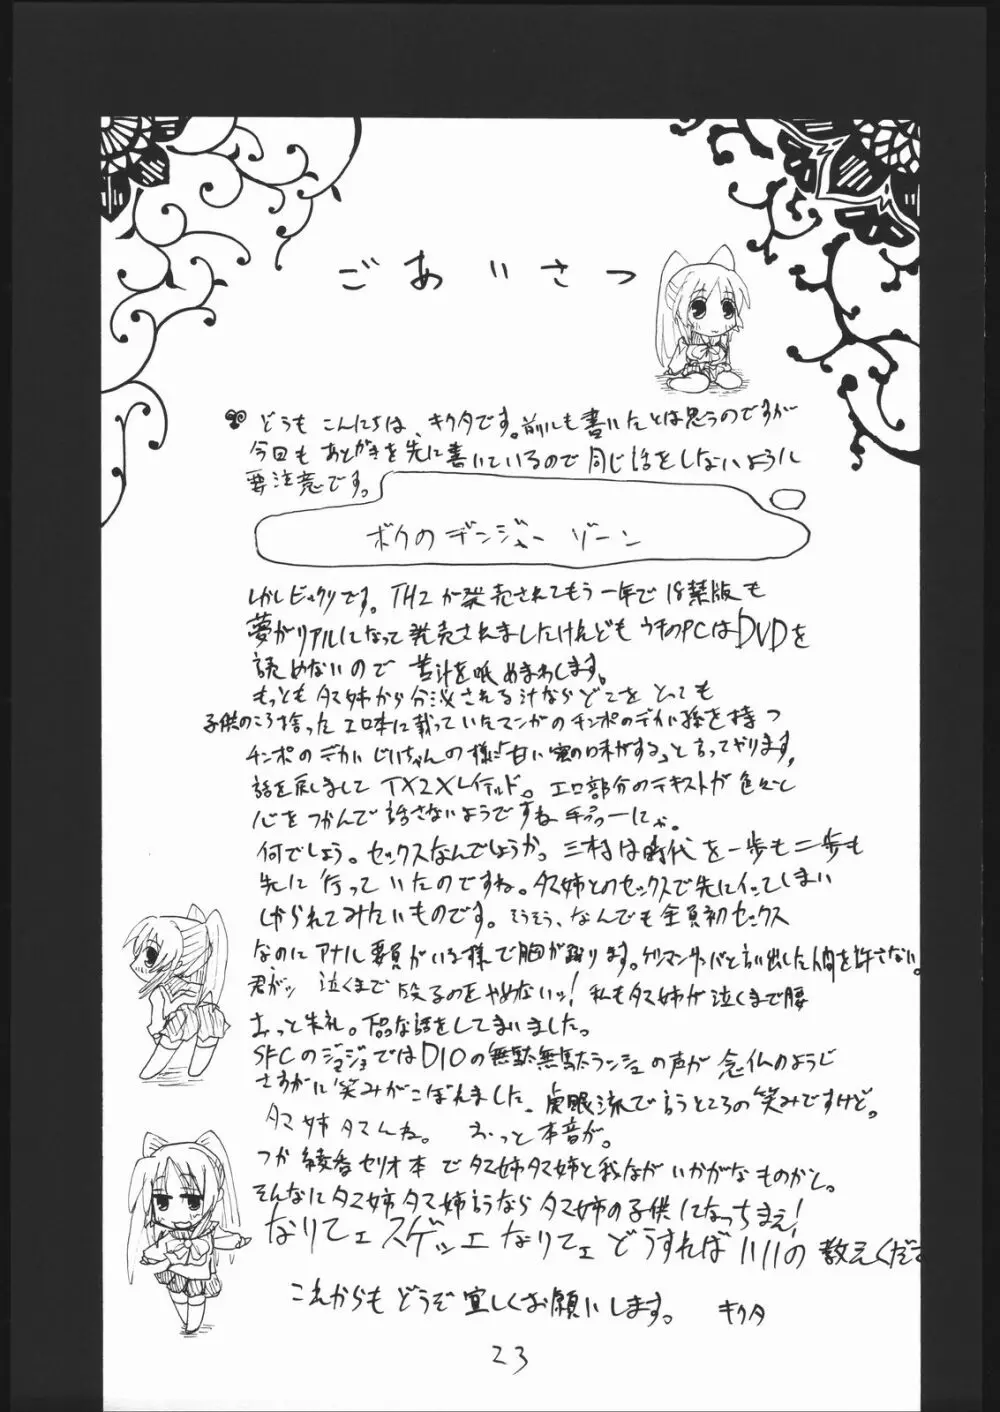 ごあいさつ
どうも こんにちは、キクタです。前にも書いたとは思うのですが
今回も あとがきを先に書いているので同じ話をしないように
要注意です。
ボクのデンジャー ゾーン
しかしビックリです。TH2が発売されてもう一年で18禁版も
夢がリアルになって発売されましたけれども ウチのPCはDVDを
読めないので 苦汁を舐めまわします。
もっとも タマ姉から分泌される汁ならどこをとっても
子供のころ拾ったエロ本に載っていたマンガのチンポのデカい孫を持つ
チンポのデカいじいちゃんの様に「甘い蜜の味がする」と言ってやります。
話を戻しまして TX2Xレイテッド。エロ部分のテキストが色々と
心をつかんで話さないようですね
何でしょう。セックスなんでしょうか。三村は時代を一歩も二歩も
先に行っていたのですね。タマ姉とのセックスで先にイッてしまい
しかられてみたいものです。そうそう、なんでも全員初セックス
なのにアナル要員がいる様で胸が踊ります。と言い出した人間を許さない。
君がッ 泣くまで殴るのをやめないッ! 私もタマ姉が泣くまで腰
おっと失礼。下品な話をしてしまいました。
SFCのジョジョではDIOの無駄無駄ランシュの声が念仏のようじ
さすがに笑みがこぼれました。虎眼流で言うところの笑みですけど。
タマ姉タマんね。 おっと本音が。
つか綾香セリオ本でタマ姉タマ姉と我ながいかがなものかと。
そんなにタマ姉タマ姉言うならタマ姉の子供になっちまえ!
なりてェスゲッェなりてェ どうすればいいの 教えくださ
これからもどうぞ宜しくお願いします。 キクタ
23